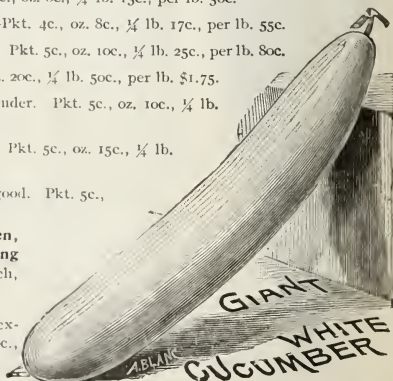 lb. 15c., per lb. 50c.
Pkt. 4c., oz. 8c., ¼ lb. 17c., per lb. 55c.
Pkt. 5c., oz. 10c., ¼ lb. 25c., per lb. 80c.
20c., ¼ lb. 50c., per lb. $1.75.
nder. Pkt. 5c., oz. 10c., ¼ lb.
Pkt. 5c., oz. 15c., ¼ lb.
good. Pkt. 5c.,
en,
ng
ch,
ex-
c.,
A. BLANC
GIANT
WHITE
CUCUMBER